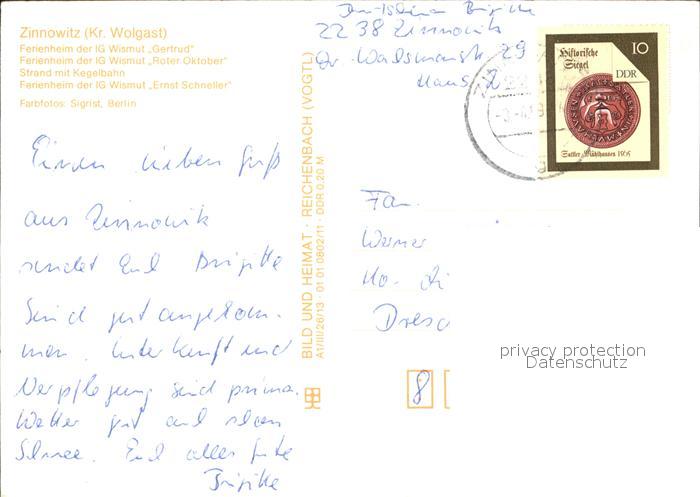 Zinnowitz (Kr. Wolgast)
Ferienheim der IG Wismut „Gertrud"
Ferienheim der IG Wismut „Roter Oktober"
Strand mit Kegelbahn
Ferienheim der IG Wismut „Ernst Schneller"
Farbfotos: Sigrist, Berlin
Brigitte
2238 Zinnowitz
Dr. 29
Haus 2
Historische
Siegel
10
DDR
Sattler Mühlhausen 1565
Einen lieben Gruß
aus Zinnowitz
sendet Euch Brigitte
Sind gut angekom-
men. Unterkunft und
Verpflegung sind prima.
Wetter gut auch schon
Schnee. Euch alles Gute
Brigitte
BILD UND HEIMAT · REICHENBACH (VOGTL)
A1/III/26/13 · 01 01 0802/11 · DDR 0,20 M
Fam.
Werner
Ho-
Dresd
8
privacy protection
Datenschutz